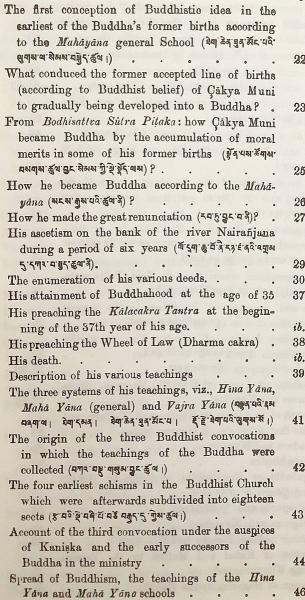 The first conception of Buddhistio idea in the
earliest of the Buddha's former births according
to the Mahâyâna general School (ཐེག་ཆེན་ཐུན་མོང་པའི་
ལུགས་ལ་སེམས་བསྐྱེད་ཚུལ།) . . . . . 22
What conduced the former accepted line of births
(according to Buddhist belief) of Çâkya Muni
to gradually being developed into a Buddha? . 23
From Bodhisattva Sûtra Piṭaka: how Çâkya Muni
became Buddha by the accumulation of moral
merits in some of his former births (སྟོན་པས་ཚོགས་
བསགས་ཚུལ་བྱང་སེམས་ཀྱི་སྡེ་སྣོད་ལས) ? . . . 25
How he became Buddha according to the Mahâ-
yâna (སངས་རྒྱས་པའི་ཚུལ་ནི) ? . . . . 26
How he made the great renunciation (རབ་ཏུ་བྱུང་བ་ནི)? . 27
His ascetism on the bank of the river Nairañjana
during a period of six years (ཆུ་བོ་ནཻ་རཉྫ་ནའི་འགྲམ་
དུ་དཀའ་བ་སྤྱད་ཚུལ་ནི). . . . . . 29
The enumeration of his various deeds. . . 30
His attainment of Buddhahood at the age of 35 37
His preaching the Kâlacakra Tantra at the begin-
ning of the 37th year of his age. . . . ib.
His preaching the Wheel of Law (Dharma cakra) . 38
His death. . . . . . . ib.
Description of his various teachings . . 39
The three systems of his teachings, viz., Hîna Yâna,
Mahâ Yâna (general) and Vajra Yâna (བསྟན་པའི་རྣམ་
བཞག་ལ། ཐེག་དམན། ཐེག་ཆེན་ཐུན་མོང་པ། རྡོ་རྗེ་ཐེག་པའི་ལུགས་སོ།) . 41
The origin of the three Buddhist convocations
in which the teachings of the Buddha were
collected (བཀའ་བསྡུ་གསུམ་བྱུང་ཚུལ།) . . . 42
The four earliest schisms in the Buddhist Church
which were afterwards subdivided into eighteen
sects (རྩ་བའི་སྡེ་བཞི་པོ་བཅོ་བརྒྱད་དུ་གྱེས་ཚུལ།) . . 43
Account of the third convocation under the auspices
of Kaniṣka and the early successors of the
Buddha in the ministry . . . . 44
Spread of Buddhism, the teachings of the Hîna
Yâna and Mahâ Yâna schools . . . . 46